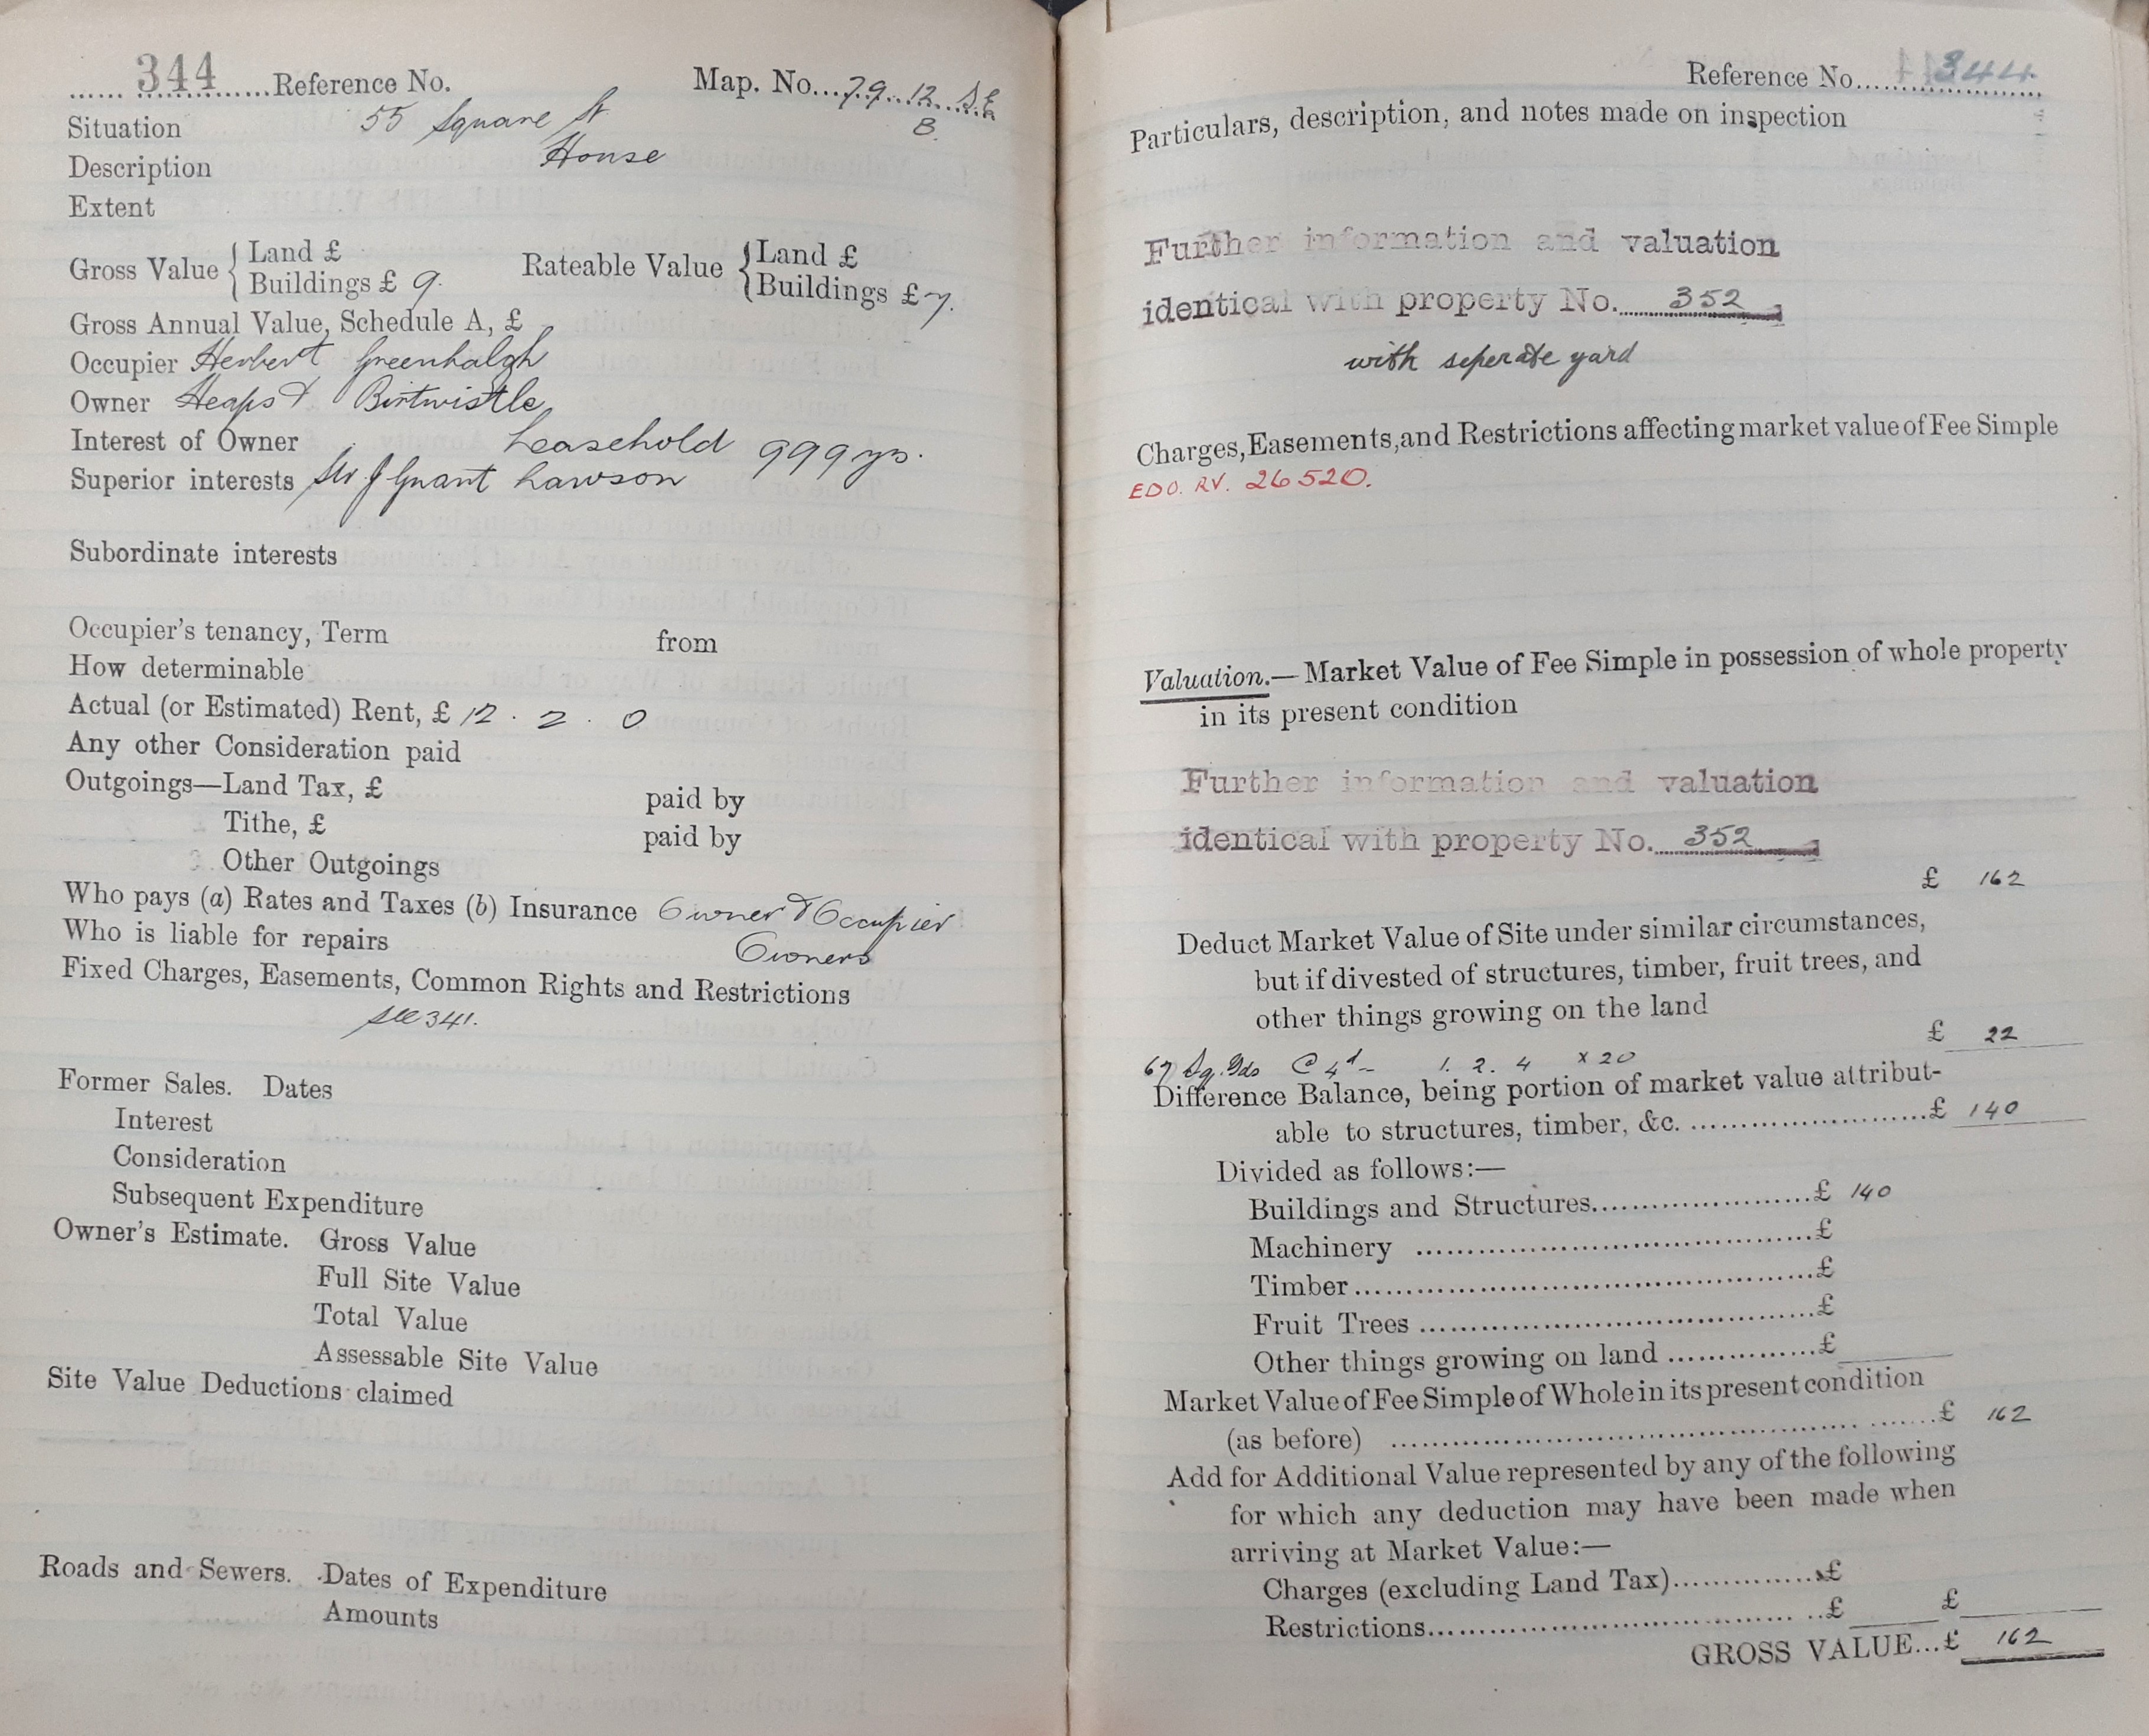 ...... 344 ......Reference No. Map. No....79.12 S.E
B.
Situation 55 Square St
Description House
Extent
Gross Value { Land £
Buildings £ 9. Rateable Value { Land £
Buildings £ 7.
Gross Annual Value, Schedule A, £
Occupier Herbert Greenhalgh
Owner Heaps & Birtwistle
Interest of Owner Leasehold 999 yrs.
Superior interests Sir J Grant Lawson
Subordinate interests
Occupier's tenancy, Term from
How determinable
Actual (or Estimated) Rent, £ 12 . 2 . 0
Any other Consideration paid
Outgoings—Land Tax, £ paid by
Tithe, £ paid by
Other Outgoings
Who pays (a) Rates and Taxes (b) Insurance Owner & Occupier
Who is liable for repairs Owners
Fixed Charges, Easements, Common Rights and Restrictions
see 341.
Former Sales. Dates
Interest
Consideration
Subsequent Expenditure
Owner's Estimate. Gross Value
Full Site Value
Total Value
Assessable Site Value
Site Value Deductions claimed
Roads and Sewers. Dates of Expenditure
Amounts
Reference No.... 344
Particulars, description, and notes made on inspection
Further information and valuation
identical with property No. 352
with seperate yard
Charges, Easements, and Restrictions affecting market value of Fee Simple
EDO. RV. 26520.
Valuation.— Market Value of Fee Simple in possession of whole property
in its present condition
Further information and valuation
identical with property No. 352
£ 162
Deduct Market Value of Site under similar circumstances,
but if divested of structures, timber, fruit trees, and
other things growing on the land
£ 22
67 Sq. Yds @ 4d - 1. 2. 4 x 20
Difference Balance, being portion of market value attribut-
able to structures, timber, &c. ............£ 140
Divided as follows:—
Buildings and Structures............£ 140
Machinery ............£
Timber............£
Fruit Trees ............£
Other things growing on land ............£
Market Value of Fee Simple of Whole in its present condition
(as before) ............£ 162
Add for Additional Value represented by any of the following
for which any deduction may have been made when
arriving at Market Value:—
Charges (excluding Land Tax)............£
Restrictions............£ £
GROSS VALUE...£ 162